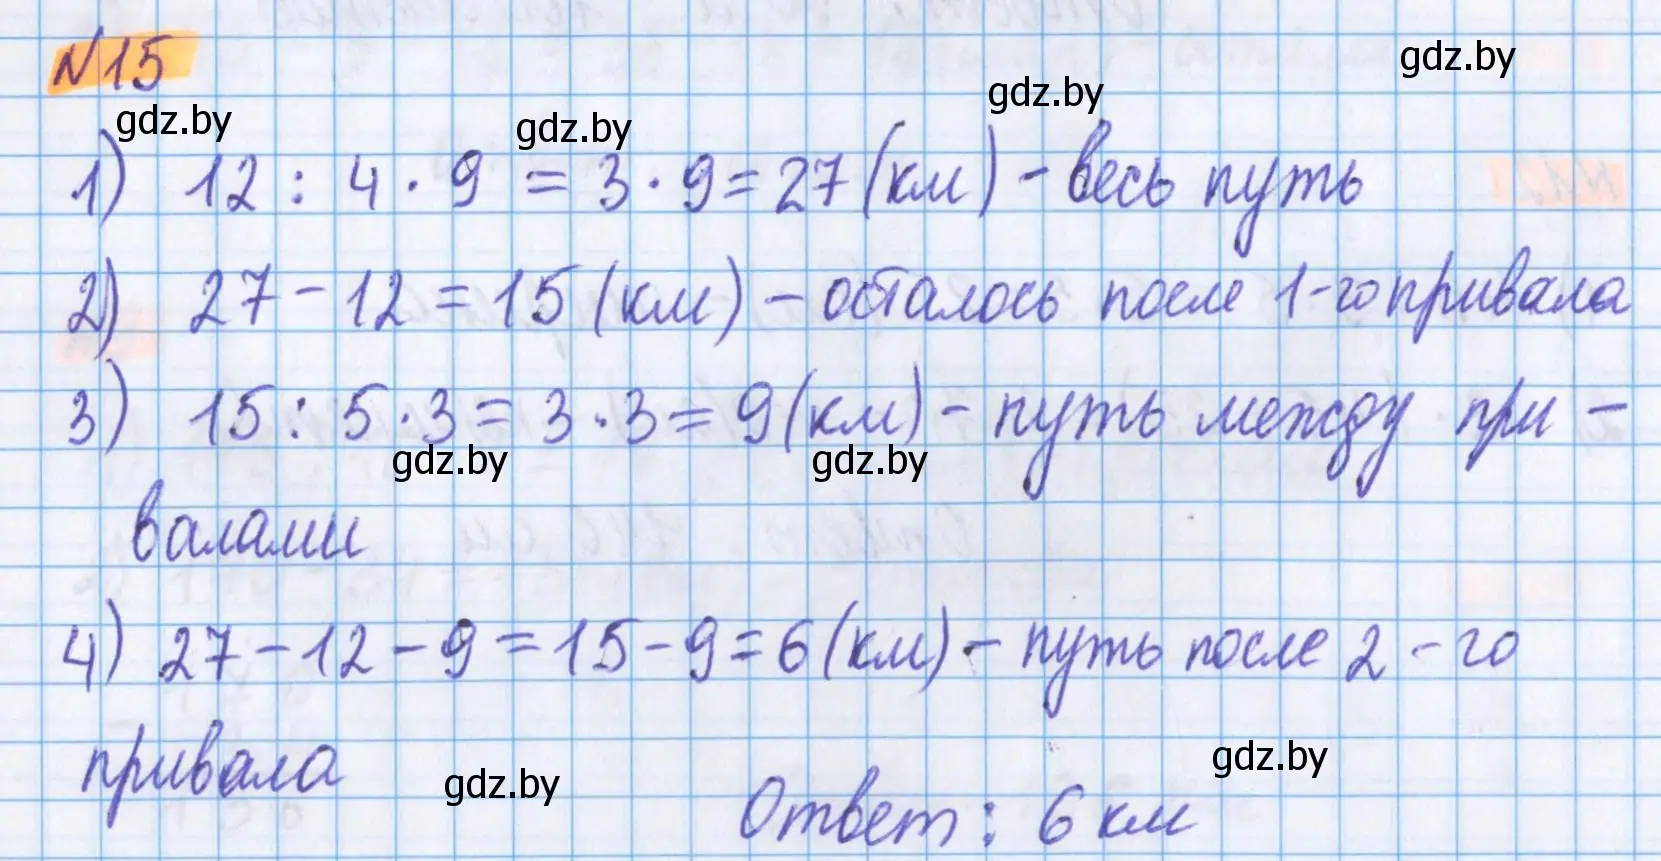 N15
gdz.by
gdz.by
gdz.by
gdz.by
1) 12 : 4 · 9 = 3 · 9 = 27 (км) - весь путь
2) 27 - 12 = 15 (км) - осталось после 1-го привала
3) 15 : 5 · 3 = 3 · 3 = 9 (км) - путь между при -
gdz.by
gdz.by
валами
4) 27 - 12 - 9 = 15 - 9 = 6 (км) - путь после 2 - го
привала
gdz.by
gdz.by
Ответ : 6 км